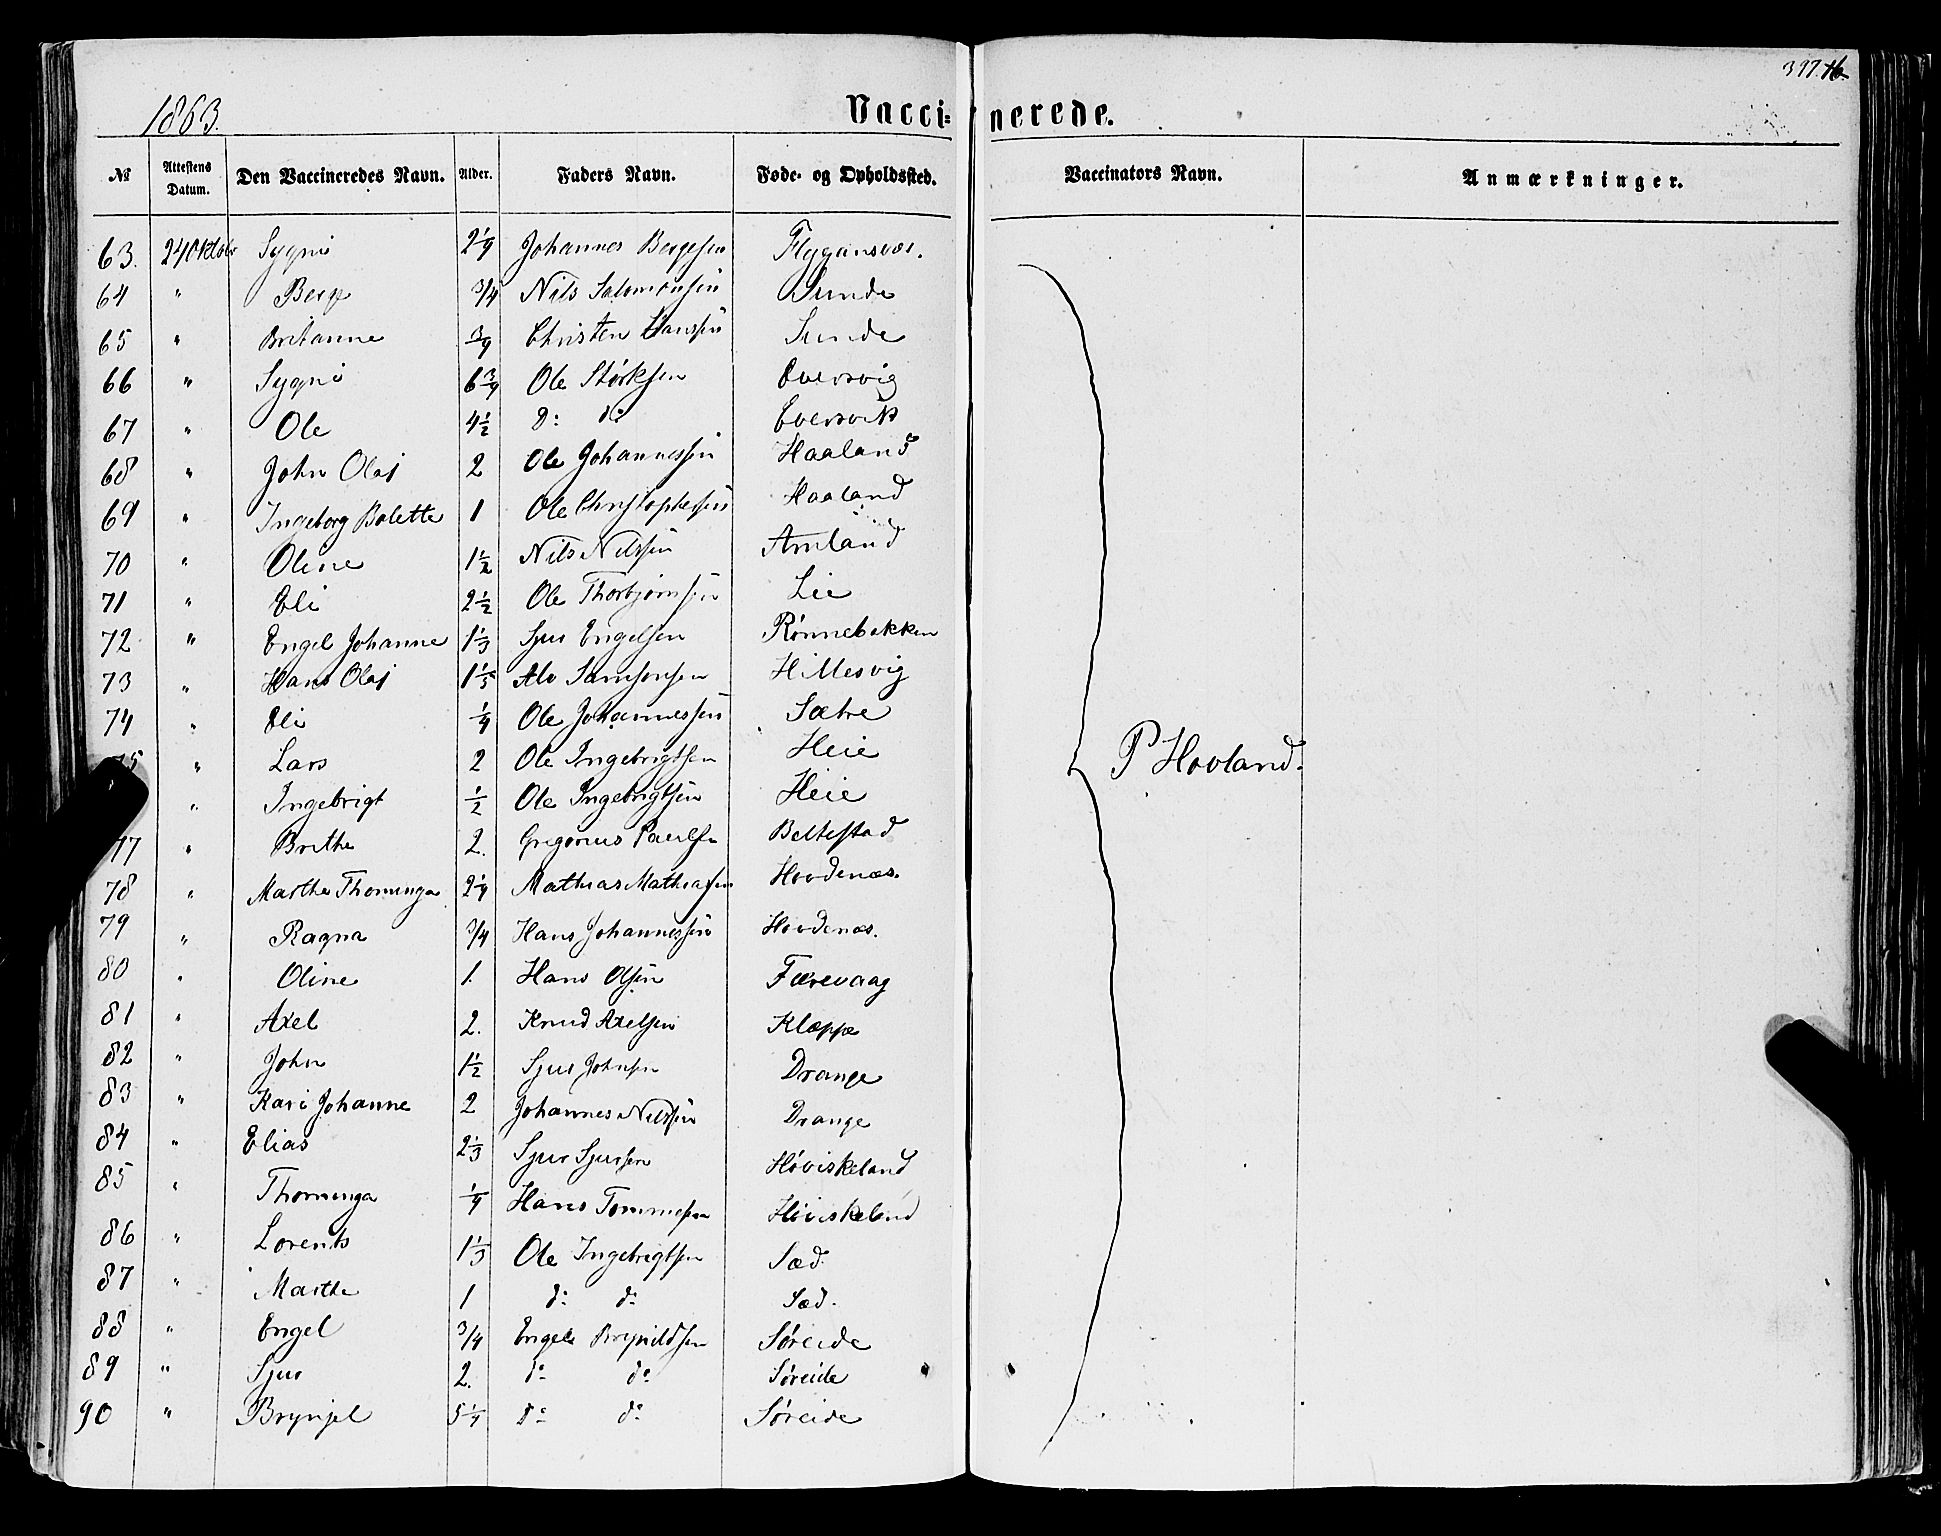 397. 16
1863.
Vaccinerede.
№ Attestens Datum. Den Vaccineredes Navn. Alder. Faders Navn. Føde- og Opholdssted. Vaccinators Navn. Anmærkninger.
63. 24 Oktobr Sygni 2 1/4 Johannes Bergesen Flygansvær.
64 " Berge 3/4 Nils Salomonsen Sunde
65 " Britanne 3/4 Christen Hanssen Sunde
66 " Sygni 6 3/4 Ole Størksen Eversvig
67 " Ole 4 1/2 do do Eversvik
68 " John Olaj 2 Ole Johannessen Haaland
69 " Ingeborg Bolette 1 Ole Christophersen Haaland
70 " Oline 1 1/2 Nils Nilssen Amland
71 " Eli 2 1/2 Ole Thorbjørnsen Lie
72 " Engel Johanne 1 1/3 Sjur Engelsen Rønnebakken
73 " Hans Olaj 1 1/3 Alv Samsonsen Hillesvig
74 " Eli 1/4 Ole Johannessen Sætre
75 " Lars 2 Ole Ingebrigtsen Heie
" Ingebrigt 1/2 Ole Ingebrigtsen Heie
77 " Brithe 2. Gregorius Paulsen Beltestad
78 " Marthe Thominga 2 1/4 Mathias Mathiassen Hovdenæs.
79 " Ragna 3/4 Hans Johannessen Hovdenæs.
80 " Oline 1. Hans Olsen Færevaag
81 " Axel 2. Knud Axelsen Kleppe
82 " John 1 1/2 Sjur Johnsen Drange
83 " Kari Johanne 2 Johannes Nilssen Drange
84 " Elias 2 1/3 Sjur Sjursen Høviskeland
85 " Thominga 1/4 Hans Tommesen Høviskeland
86 " Lorents 1 1/3 Ole Ingebrigtsen Sæd
87 " Marthe 1 do do Sæd.
88 " Engel 3/4 Engel Brynildsen Søreide
89 " Sjur 2. do do Søreide
90 " Brynjel 5 1/4 do do Søreide
P Hovland.